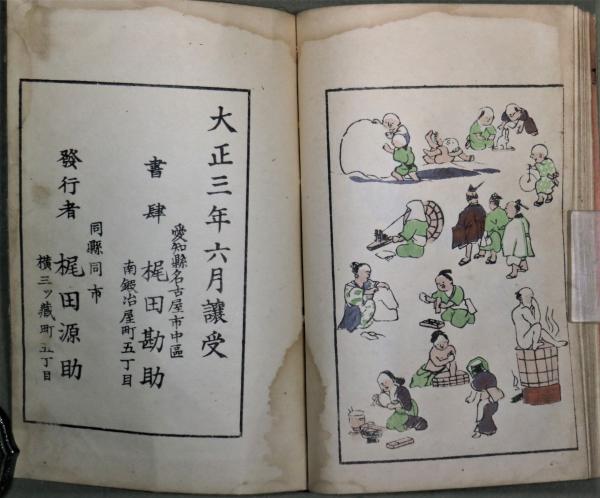 大正三年六月讓受
愛知縣名古屋市中區
南鍛冶屋町五丁目
書肆 梶田勘助
同縣同市
橫三ツ藏町五丁目
發行者 梶田源助